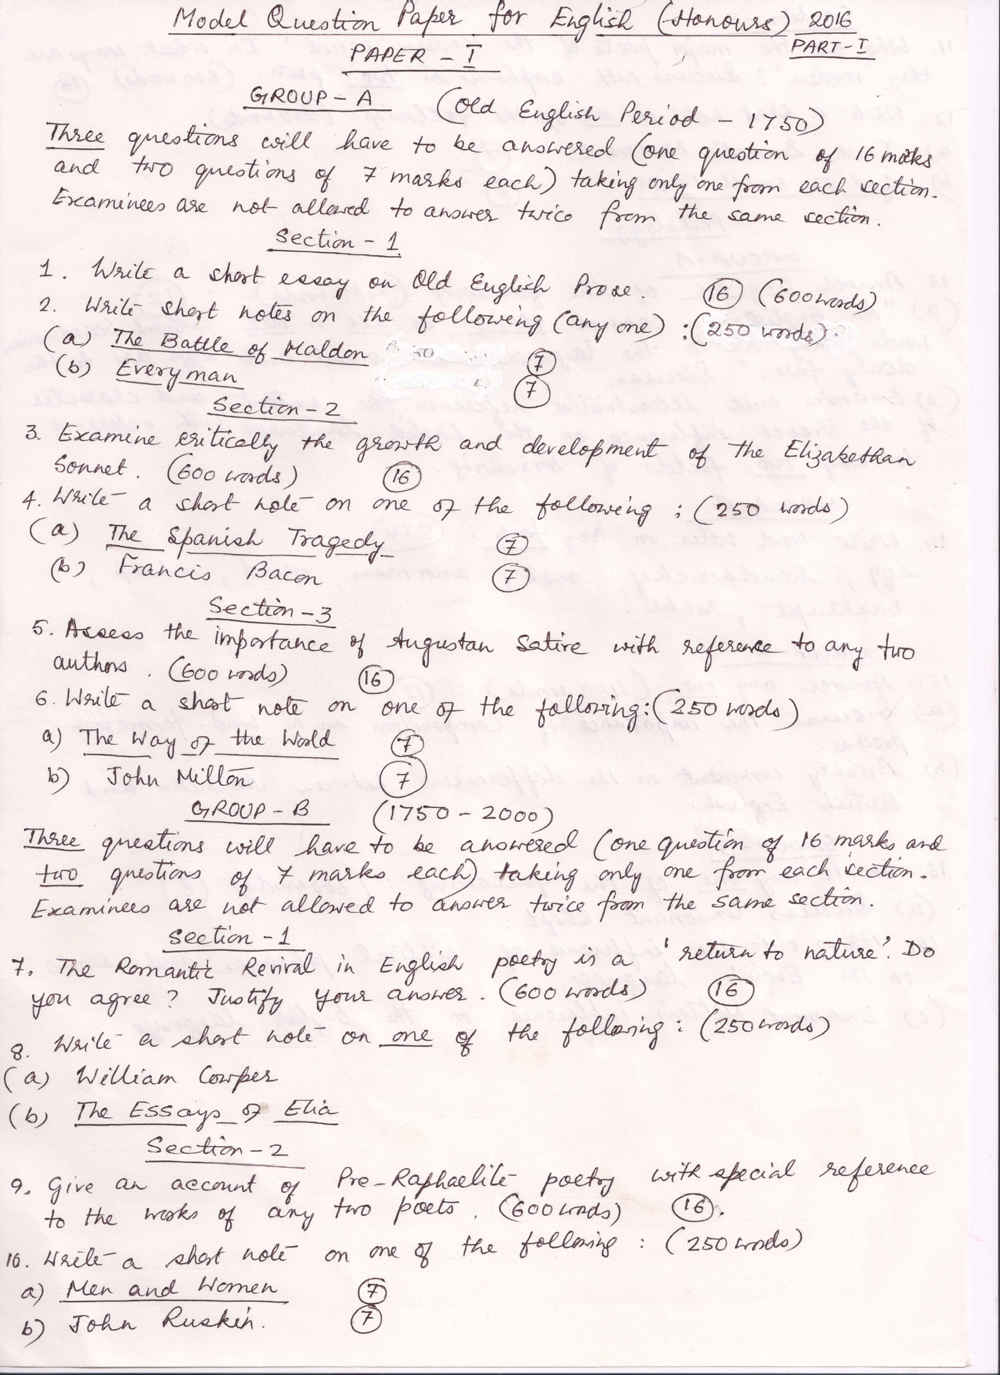 Model Question Paper for English (Honours) 2016
PAPER - I PART-I
GROUP-A (Old English Period - 1750)
Three questions will have to be answered (one question of 16 marks
and two questions of 7 marks each) taking only one from each section.
Examinees are not allowed to answer twice from the same section.
Section - 1
1. Write a short essay on Old English Prose. 16 (600 words)
2. Write short notes on the following (any one) : (250 words).
(a) The Battle of Maldon 7
(b) Everyman 7
Section - 2
3. Examine critically the growth and development of the Elizabethan
Sonnet. (600 words) 16
4. Write a short note on one of the following : (250 words)
(a) The Spanish Tragedy 7
(b) Francis Bacon 7
Section - 3
5. Assess the importance of Augustan Satire with reference to any two
authors. (600 words) 16
6. Write a short note on one of the following: (250 words)
a) The Way of the World 7
b) John Milton 7
GROUP - B (1750 - 2000)
Three questions will have to be answered (one question of 16 marks and
two questions of 7 marks each) taking only one from each section.
Examinees are not allowed to answer twice from the same section.
Section - 1
7. The Romantic Revival in English poetry is a 'return to nature'. Do
you agree? Justify your answer. (600 words) 16
8. Write a short note on one of the following : (250 words)
(a) William Cowper
(b) The Essays of Elia
Section - 2
9. Give an account of Pre-Raphaelite poetry with special reference
to the works of any two poets. (600 words) 16.
10. Write a short note on one of the following : (250 words)
a) Men and Women 7
b) John Ruskin. 7